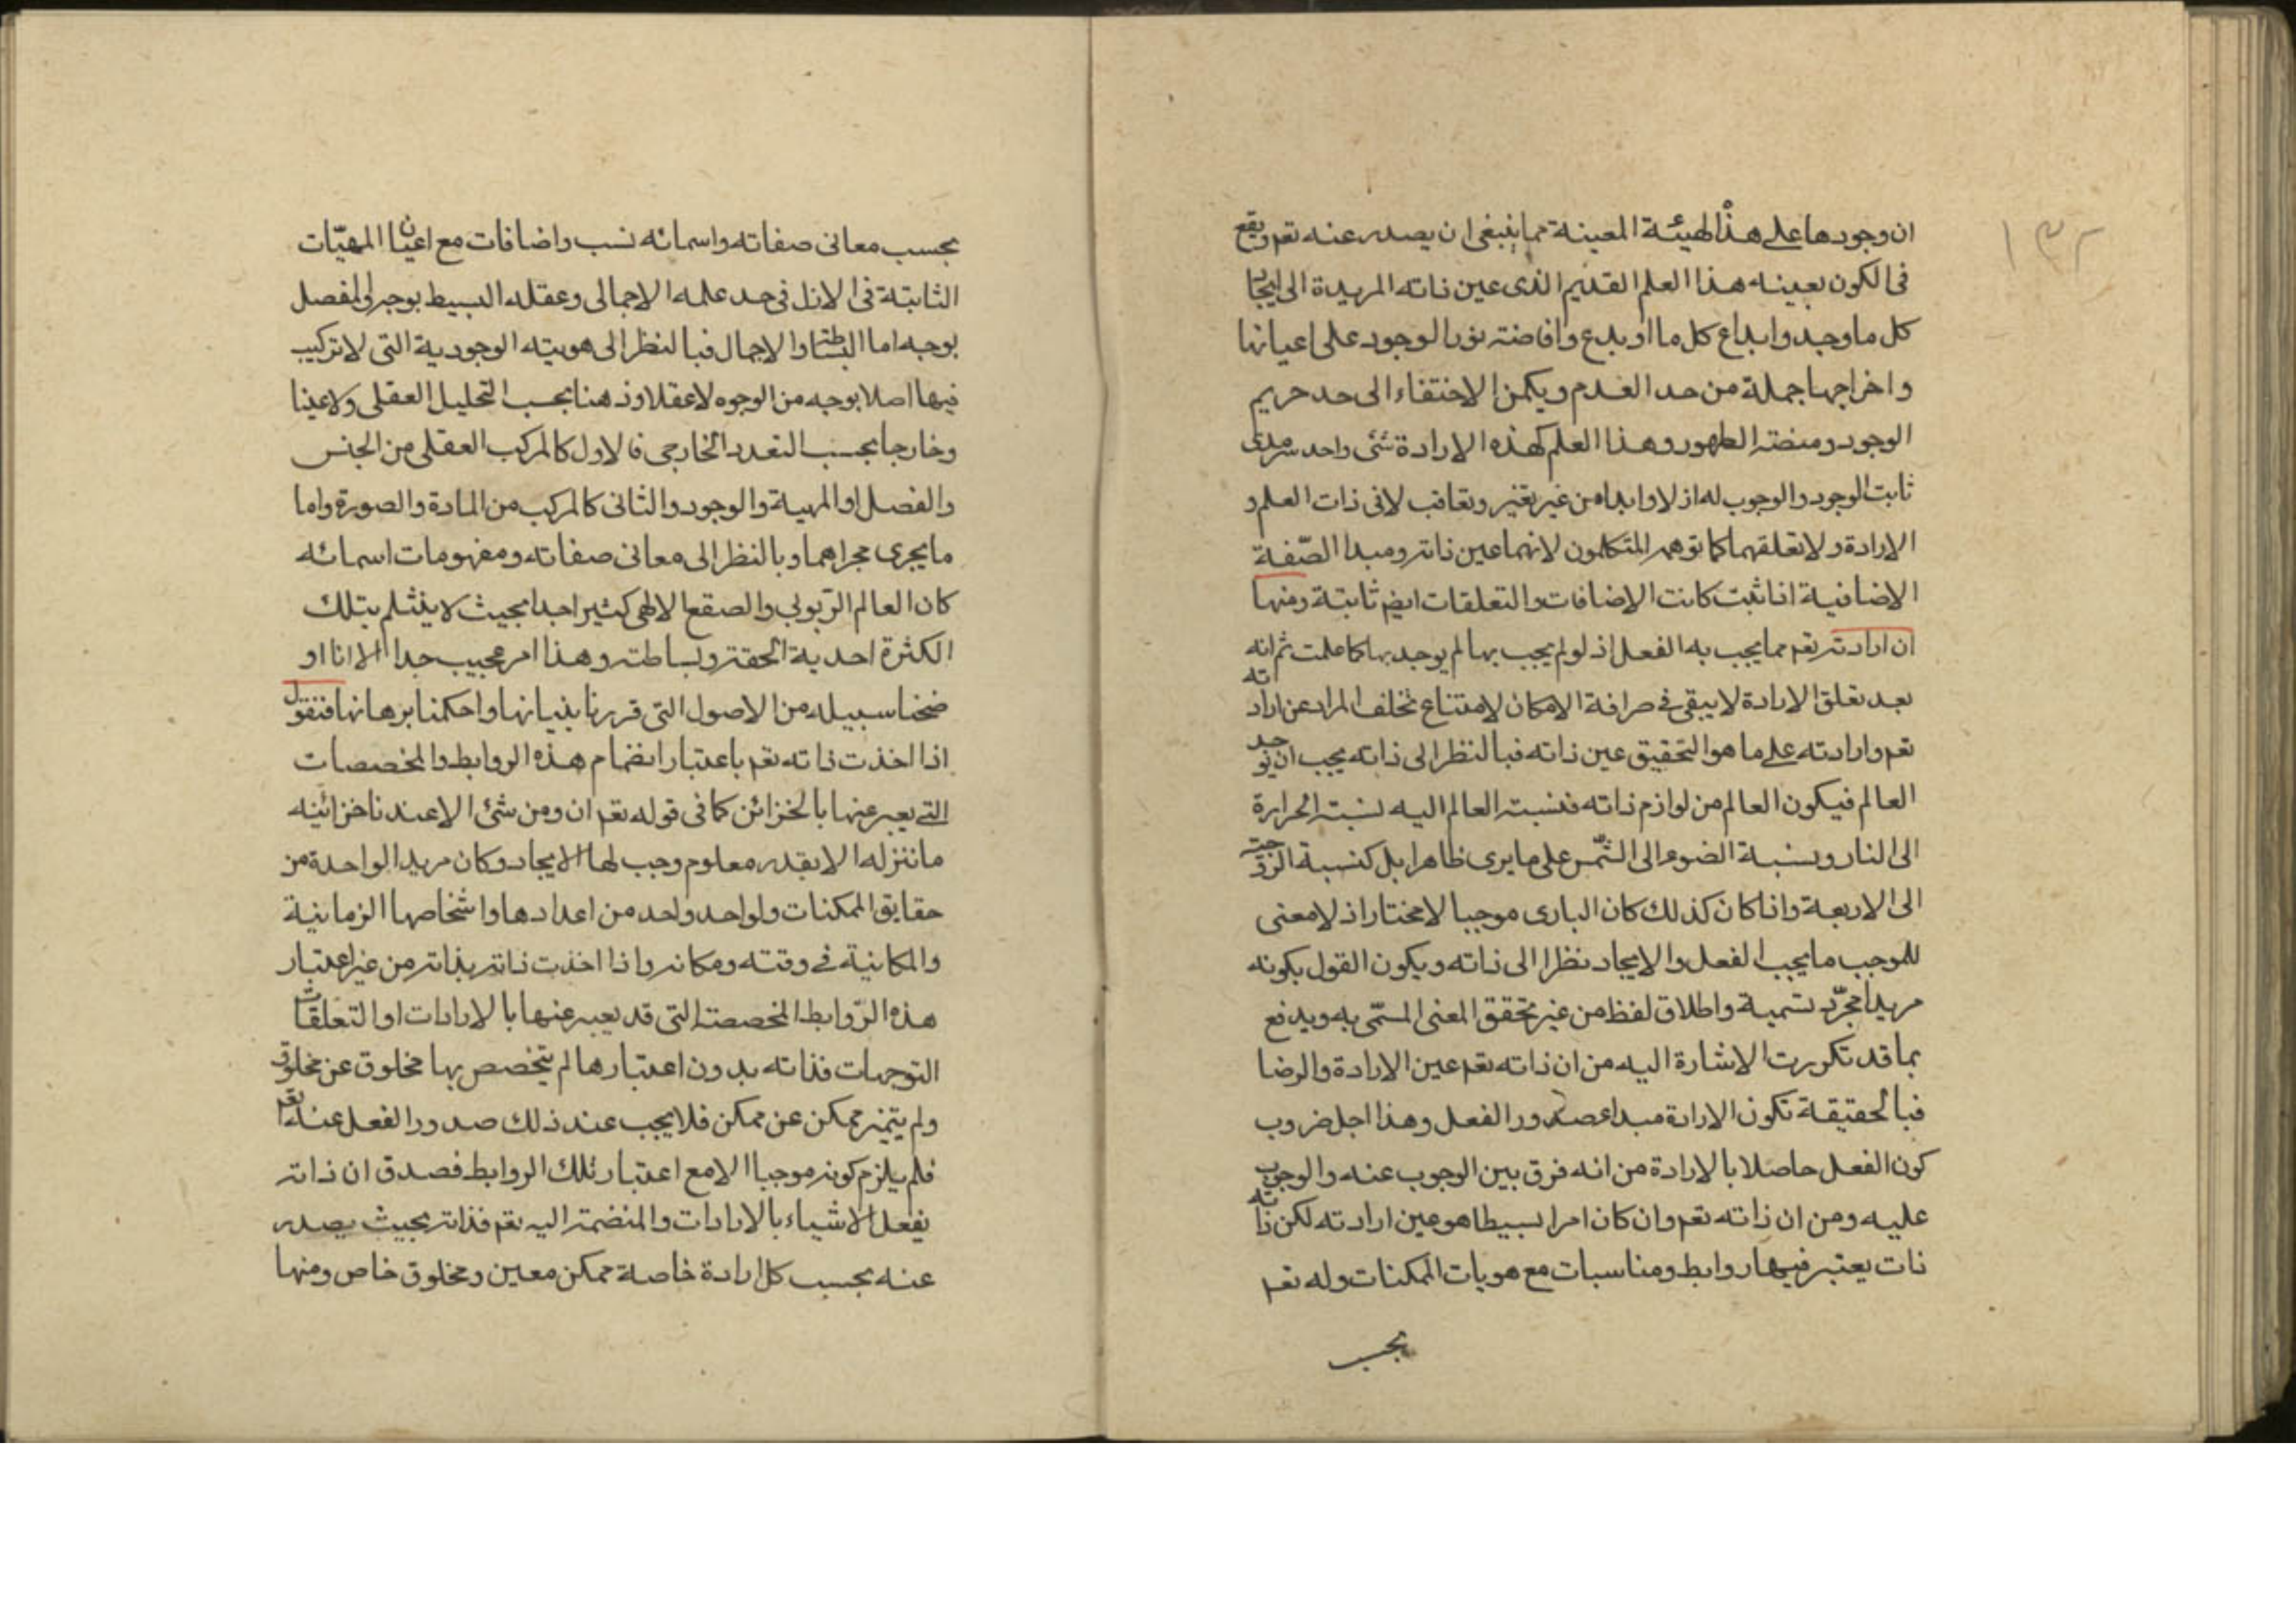 ١٣٢
ان وجودها على هذا الهيئة المعينة مما ينبغى ان يصدر عنه تعم ويقع
فى الكون بعينه هذا العلم القديم الذى عين ذاته المريدة الى ايجاد
كل ما وجد وابداع كل ما ابدع وافاضته نور الوجود على اعيانها
واخراجها جملة من حد العدم ويكمن الاختفاء الى حد حريم
الوجود ومنصة الظهور وهذا العلم كهذه الارادة شئ واحد سرمدى
ثابت الوجود والوجوب له ازلا وابدا من غير تغير وتعاقب لا فى ذات العلم و
الارادة ولا تعلقهما كما توهمه المتكلمون لانهما عين ذاته ومبدا الصّفة
الاضافية اذا ثبت كانت الاضافات والتعلقات ايضم ثابتة ومنها
ان ارادته تعم مما يجب به الفعل اذ لو لم يجب بها لم يوجد بها كما علمت ثم انه
بعد تعلق الارادة لا يبقى فى صرافة الامكان لامتناع تخلف المراد عن ارادته
تعم وارادته على ما هو التحقيق عين ذاته فبالنظر الى ذاته يجب ان يوجد
العالم فيكون العالم من لوازم ذاته فنسبة العالم اليه نسبة الحرارة
الى النار ونسبة الضوء الى الشّمس على ما يرى ظاهرا بل كنسبة الزوجية
الى الاربعة واذا كان كذلك كان البارى موجبا لا مختارا اذ لا معنى
للموجب ما يجب الفعل والايجاد نظرا الى ذاته ويكون القول بكونه
مريدا مجرّد تسمية واطلاق لفظ من غير تحقق المعنى المسمّى به ويدفع
بما قد تكررت الاشارة اليه من ان ذاته تعم عين الارادة والرضا
فبالحقيقة تكون الارادة مبدا صدور الفعل وهذا اجل ضروب
كون الفعل حاصلا بالارادة من انه فرق بين الوجوب عنه والوجوب
عليه ومن ان ذاته تعم وان كان امرا بسيطا هو عين ارادته لكن ذاته
ذات يعتبر فيها روابط ومناسبات مع هويات الممكنات وله تعم
بحسب
بحسب معانى صفاته واسمائه نسب واضافات مع اعيان المهيّات
الثابتة فى الازل فى حد علمه الاجمالى وعقله البسيط بوجه والمفصل
بوجه اما البساطة والاجمال فبالنظر الى هويته الوجودية التى لا تركيب
فيها اصلا بوجه من الوجوه لا عقلا وذهنا بحسب التحليل العقلى ولا عينا
وخارجا بحسب التعدد الخارجى فالاول كالمركب العقلى من الجنس
والفصل او المهية والوجود والثانى كالمركب من المادة والصورة واما
ما يجرى مجراهما وبالنظر الى معانى صفاته ومفهومات اسمائه
كان العالم الرّبوبى والصقع الالهى كثيرا جدا بحيث لا ينثلم بتلك
الكثرة احدية الحقة وبساطته وهذا امر عجيب جدا الا انا او
ضحنا سبيله من الاصول التى قررنا بنيانها واحكمنا برهانها فنقول
اذا اخذت ذاته تعم باعتبار انضمام هذه الروابط والمخصصات
التى يعبر عنها بالخزائن كما فى قوله تعم ان ومن شئ الا عندنا خزائنه
ما ننزله الا بقدر معلوم وجب لها الايجاد وكان مريدا لواحدة من
حقايق الممكنات ولواحد واحد من اعدادها واشخاصها الزمانية
والمكانية فى وقته ومكانه واذا اخذت ذاته بذاته من غير اعتبار
هذه الرّوابط المخصصة التى قد يعبر عنها بالارادات او التعلقات
التوجهات فذاته بدون اعتبارها لم يتخصص بها مخلوق عن مخلوق
ولم يتميز ممكن عن ممكن فلا يجب عند ذلك صدور الفعل عنه تعم
فلم يلزم كونه موجبا الا مع اعتبار تلك الروابط فصدق ان ذاته
يفعل الاشياء بالارادات والمنضمة اليه تعم فذاته بحيث يصدر
عنه بحسب كل ارادة خاصة ممكن معين ومخلوق خاص ومنها